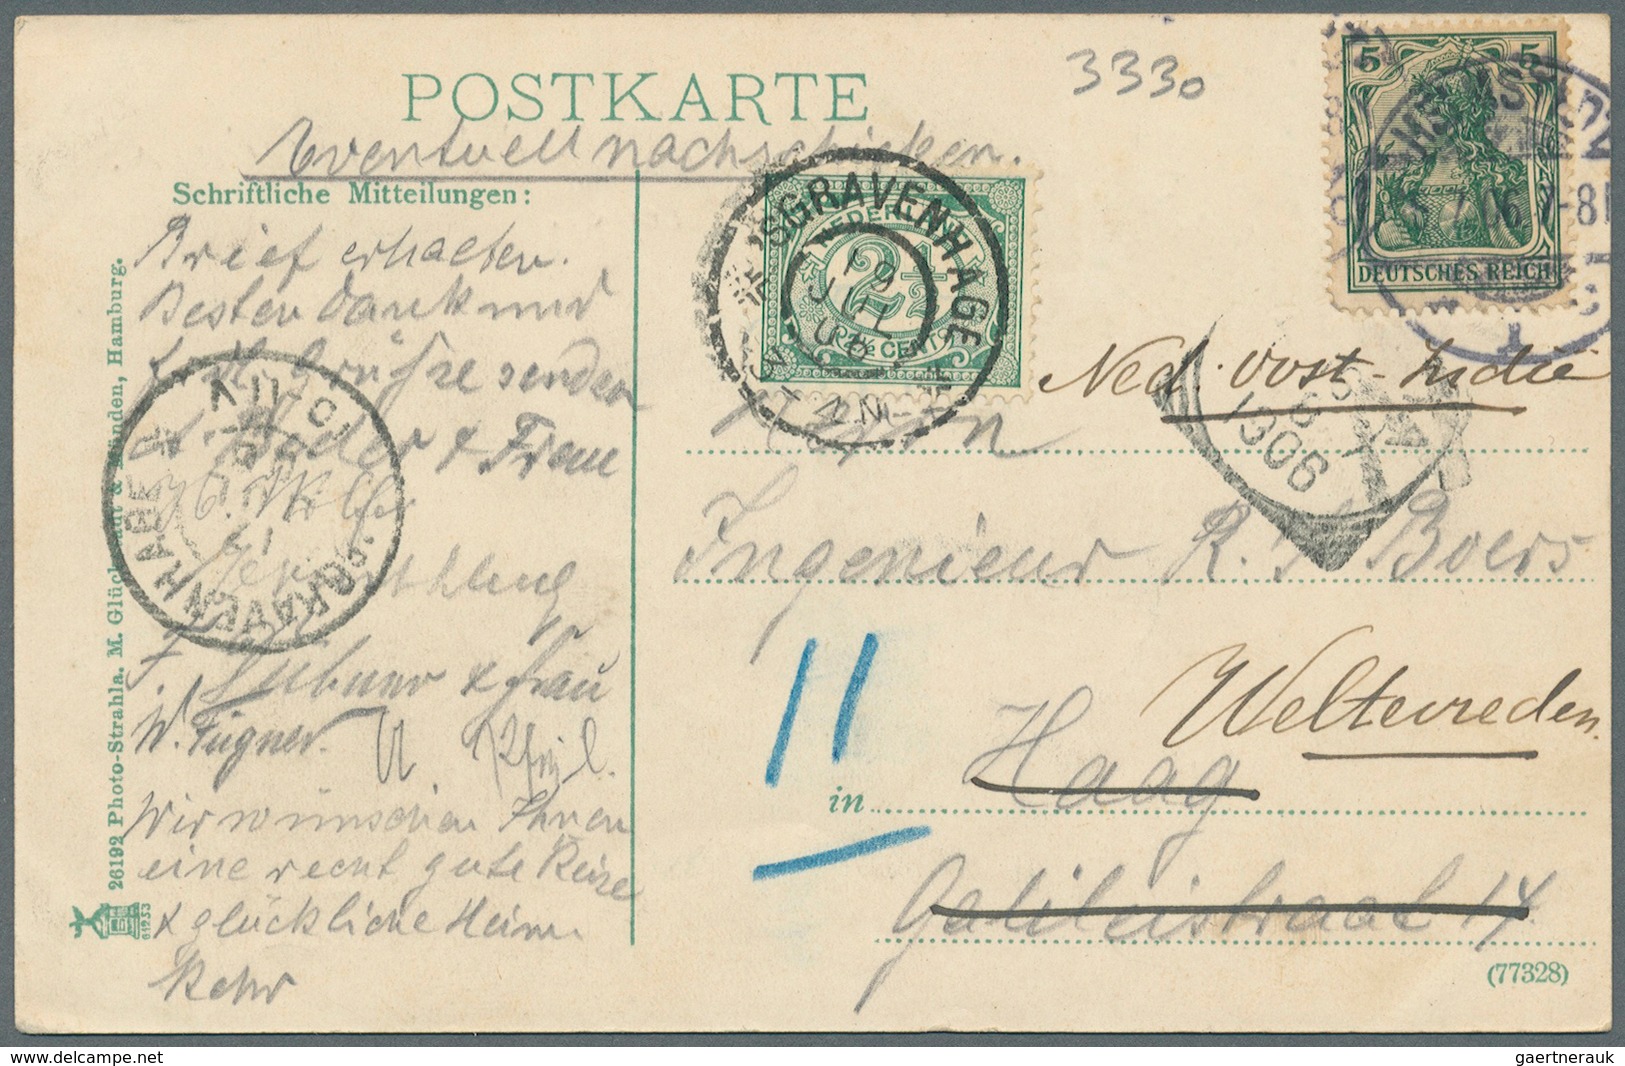 POSTKARTE
3330
Eventuell nachschicken.
Schriftliche Mitteilungen:
Brief erhalten.
Besten Dank und
Grüsse senden
& Frau
& Frau
W. Fügner.
Wir wünschen Ihnen
eine recht gute Reise
& glückliche Heim
kehr
26192 Photo-Strahla. M. Glückstadt & Münden, Hamburg.
61953
'SGRAVENHAGE
19
JUL
06
NEDERL
2½
2½ CENT
5 5
DEUTSCHES REICH
7-8
Ned. Oost-Indie
1906
'SGRAVENHAGE
Ingenieur R. Boers
Weltevreden.
11
in Haag
Galileistraat 14
(77328)
gaertnerauk